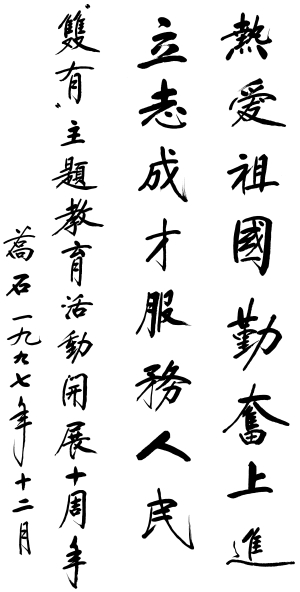 熱愛祖國勤奮上進
立志成才服務人民
“雙有”主題教育活動開展十周年
喬石一九九七年十二月